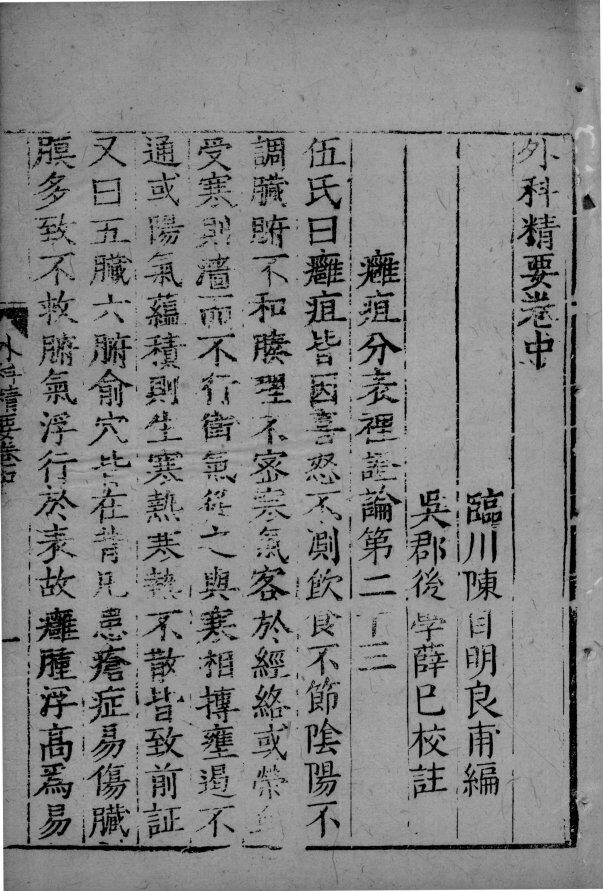 外科精要卷中
臨川陳自明良甫編
吳郡後學薛已校註
癰疽分表裡證論第二十三
伍氏曰癰疽皆因喜怒不測飲食不節陰陽不
調臟腑不和腠理不密寒氣客於經絡或榮
受寒則濇而不行衛氣從之與寒相摶壅遏不
通或陽氣蘊積則生寒熱寒熱不散皆致前証
又曰五臟六腑俞穴皆在背凡患瘡症易傷臟
膜多致不救腑氣浮行於表故癰腫浮高爲易
外科精要卷中
一